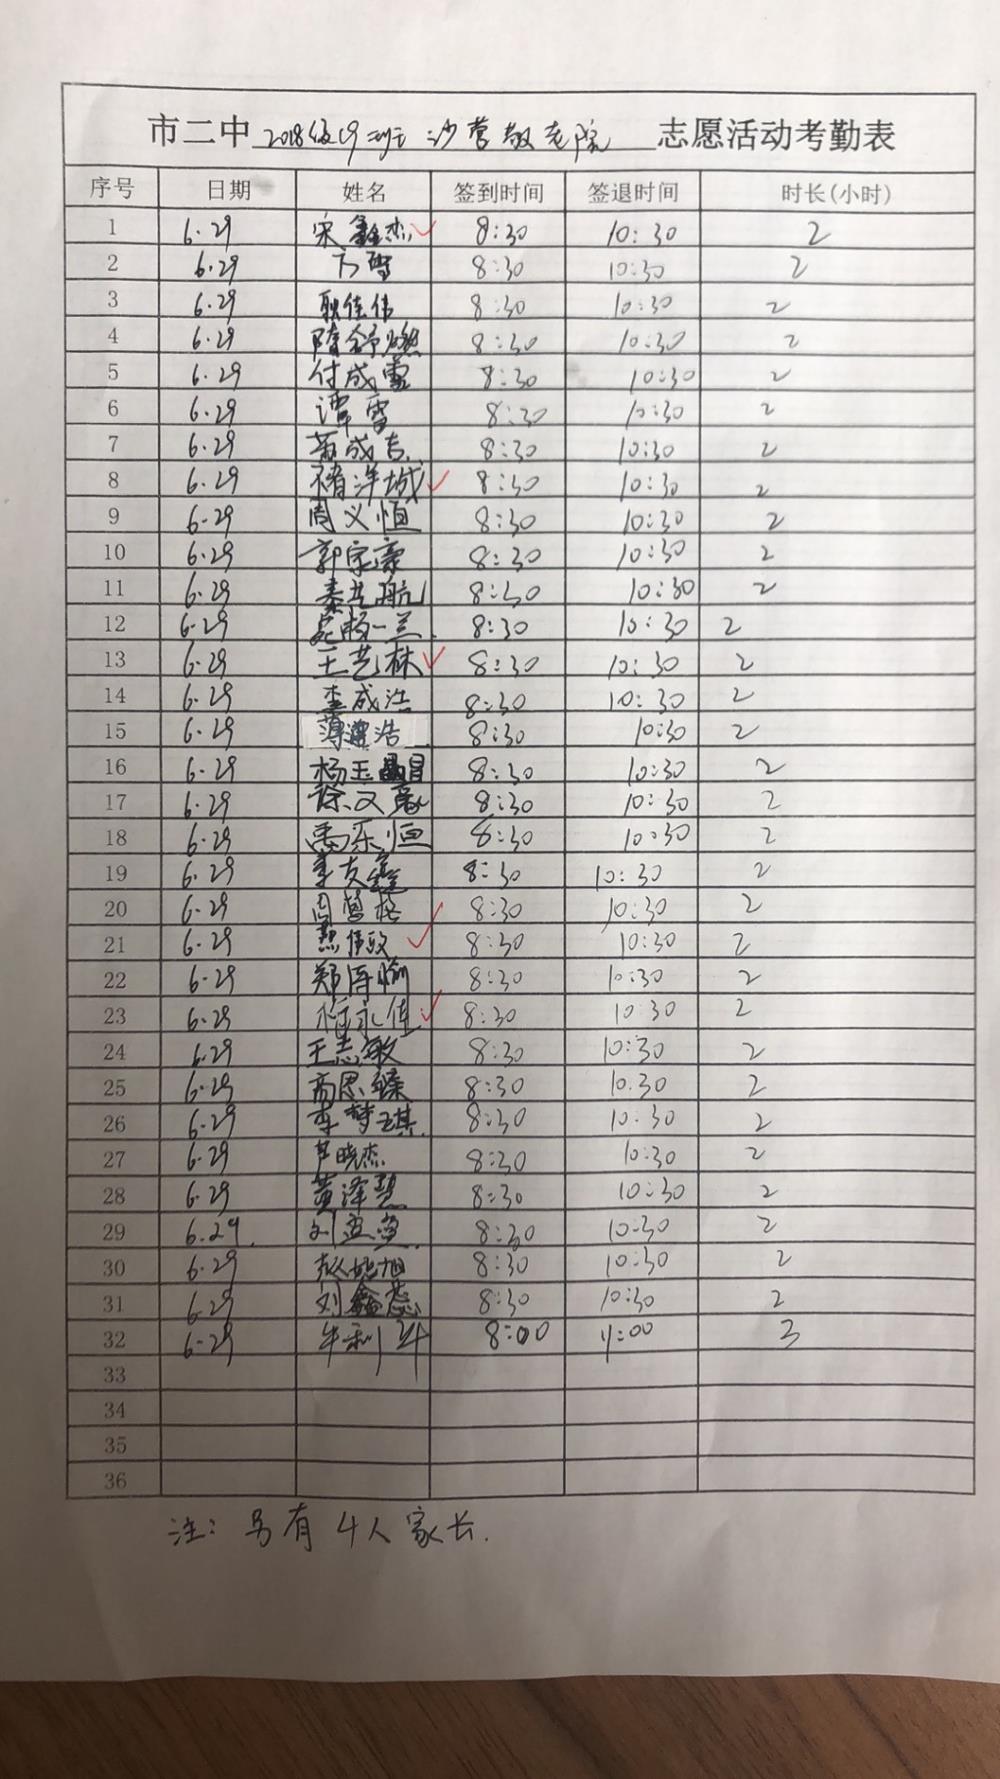 市二中 2018级19班 沙营敬老院 志愿活动考勤表
序号 日期 姓名 签到时间 签退时间 时长(小时)
1 6.29 宋鑫杰 8:30 10:30 2
2 6.29 8:30 10:30 2
3 6.29 耿佳伟 8:30 10:30 2
4 6.29 隋舒燃 8:30 10:30 2
5 6.29 付成雪 8:30 10:30 2
6 6.29 谭雪 8:30 10:30 2
7 6.29 8:30 10:30 2
8 6.29 褚洋城 8:30 10:30 2
9 6.29 周义恒 8:30 10:30 2
10 6.29 郭家豪 8:30 10:30 2
11 6.29 秦艺航 8:30 10:30 2
12 6.29 8:30 10:30 2
13 6.29 王艺林 8:30 10:30 2
14 6.29 李成浩 8:30 10:30 2
15 6.29 8:30 10:30 2
16 6.29 8:30 10:30 2
17 6.29 徐文豪 8:30 10:30 2
18 6.29 禹乐恒 8:30 10:30 2
19 6.29 李友鑫 8:30 10:30 2
20 6.29 8:30 10:30 2
21 6.29 8:30 10:30 2
22 6.29 8:30 10:30 2
23 6.29 8:30 10:30 2
24 6.29 王志敏 8:30 10:30 2
25 6.29 8:30 10.30 2
26 6.29 李梦琪 8:30 10:30 2
27 6.29 尹晓杰 8:30 10:30 2
28 6.29 黄泽慧 8:30 10:30 2
29 6.29. 8:30 10:30 2
30 6.29 8:30 10:30 2
31 6.29 刘鑫蕊 8:30 10:30 2
32 6.29 8:00 11:00 3
33
34
35
36
注: 另有4人家长.